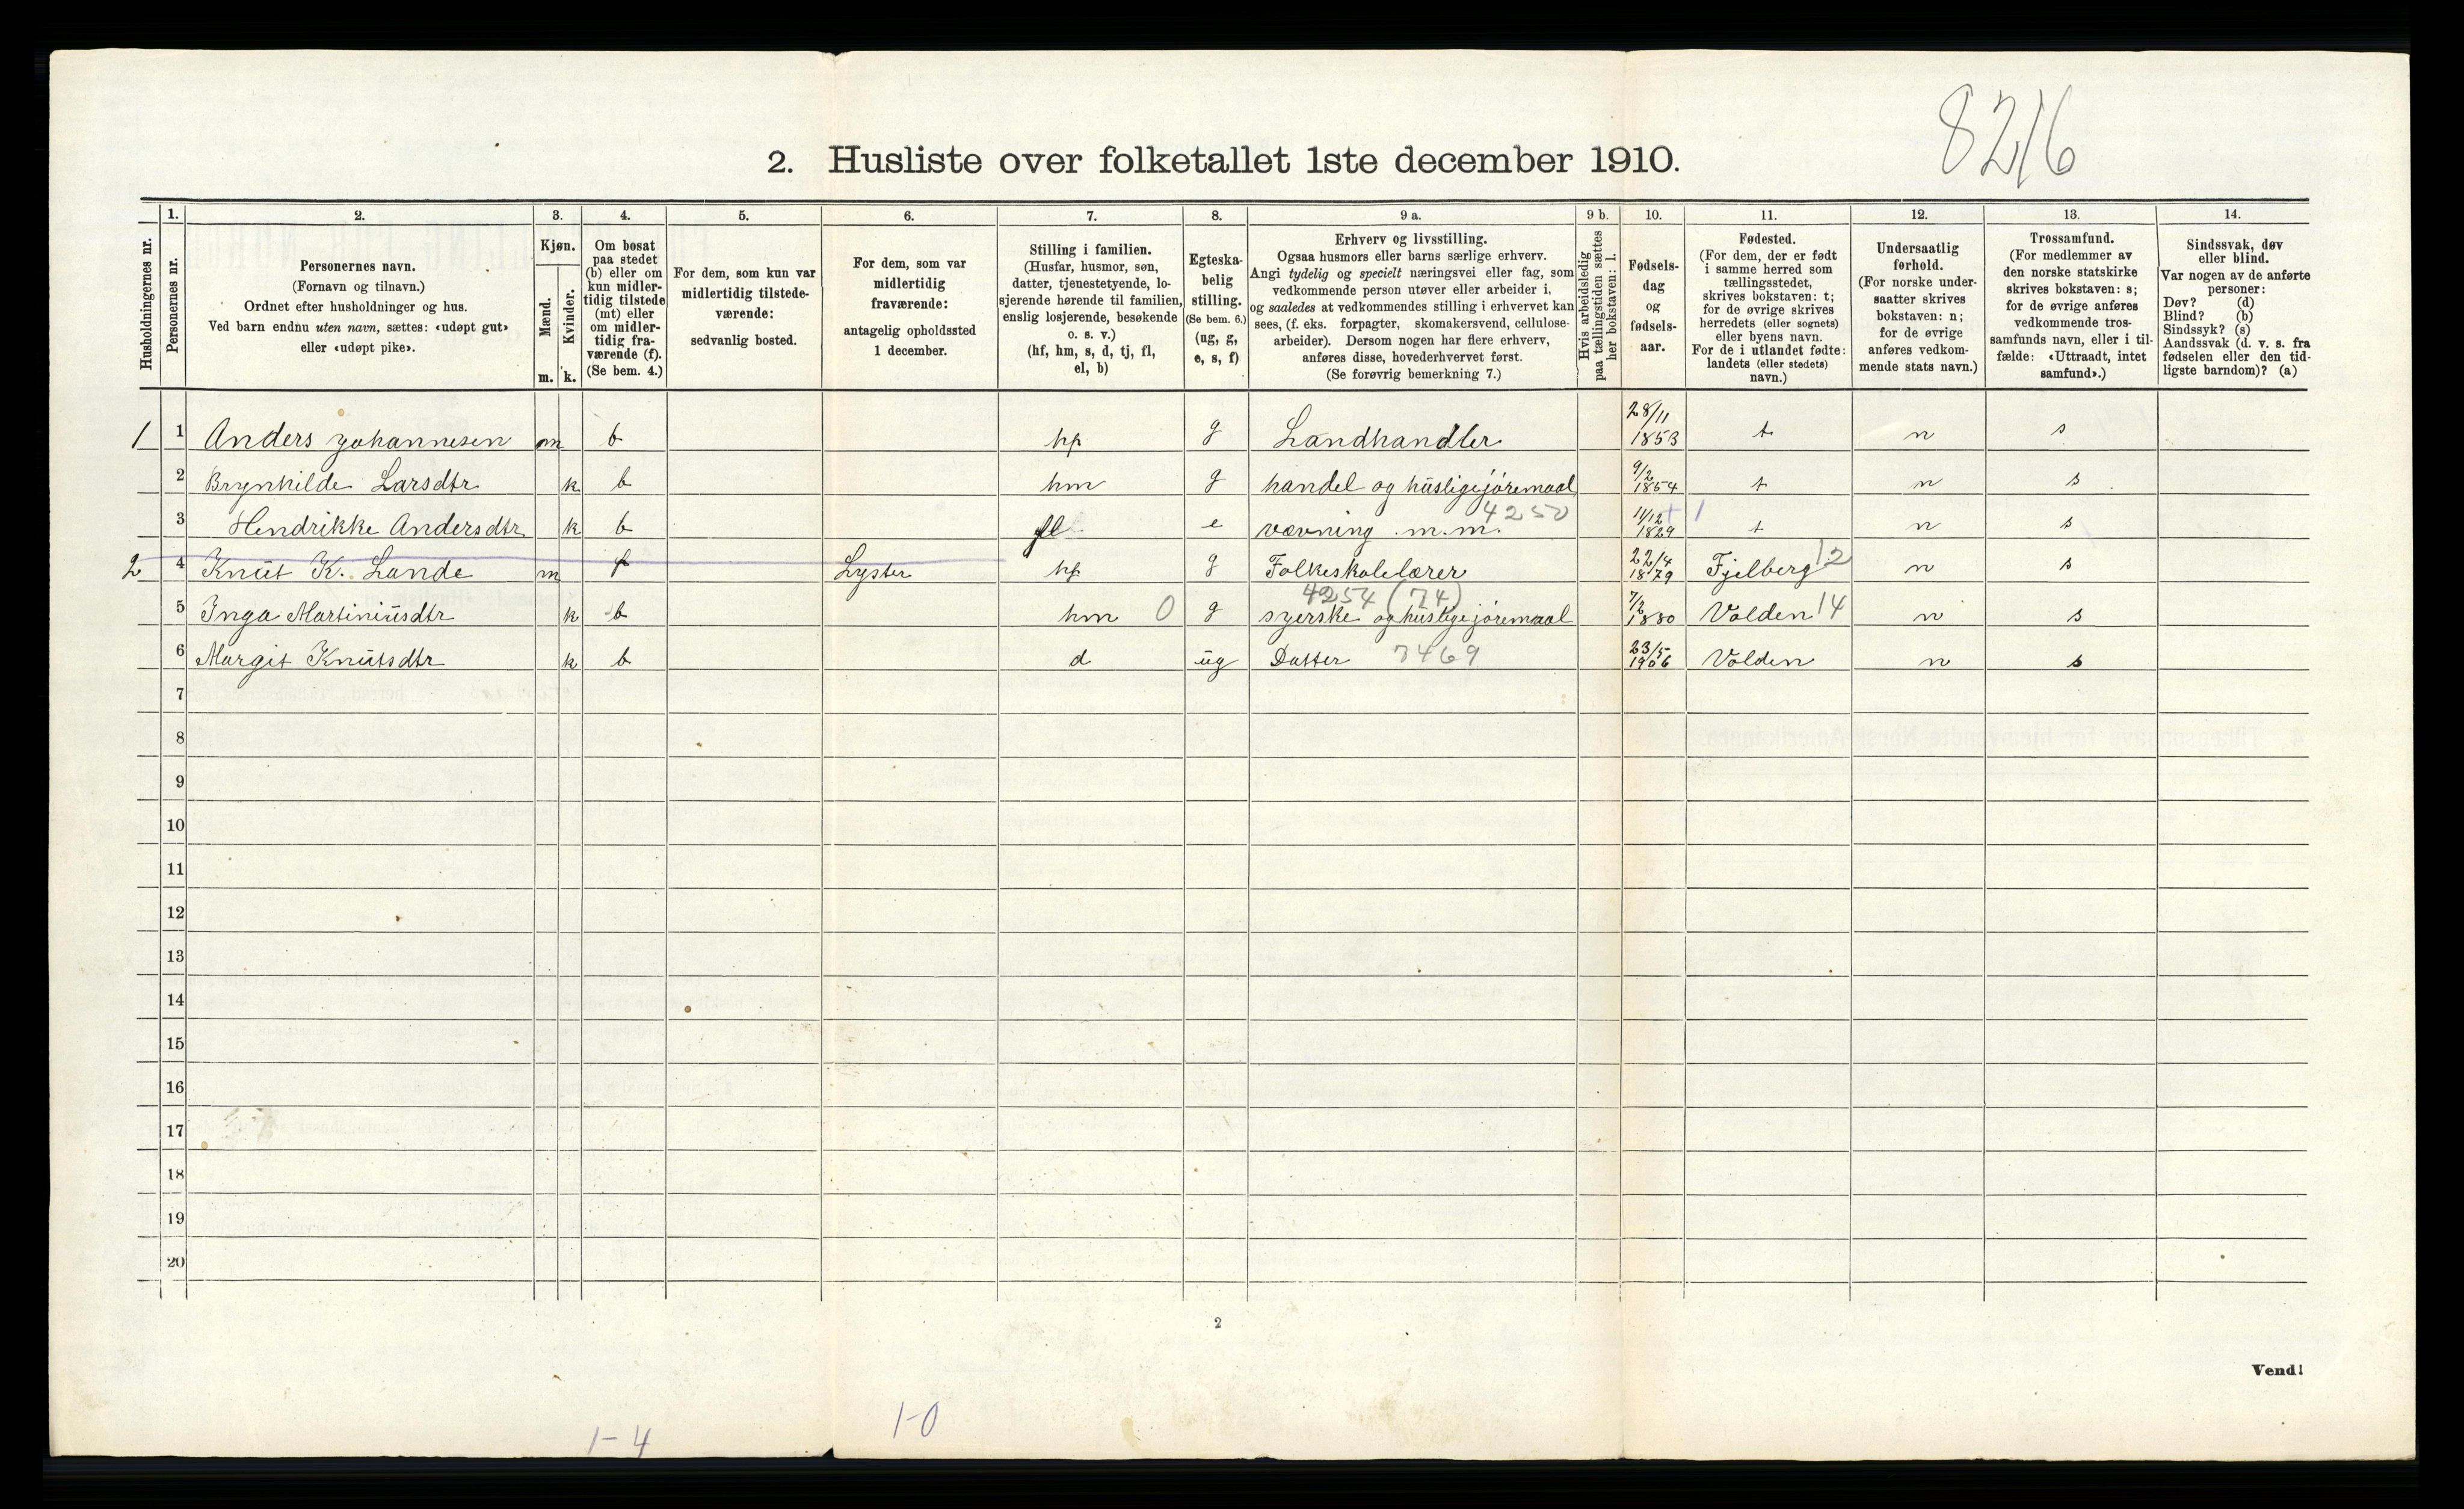 8216
2. Husliste over folketallet 1ste december 1910.
Husholdningernes nr.
1.
Personernes nr.
2.
Personernes navn.
(Fornavn og tilnavn.)
Ordnet efter husholdninger og hus.
Ved barn endnu uten navn, sættes: «udøpt gut»
eller «udøpt pike».
3.
Kjøn.
Mænd.
Kvinder.
m. k.
4.
Om bosat
paa stedet
(b) eller om
kun midler-
tidig tilstede
(mt) eller
om midler-
tidig fra-
værende (f).
(Se bem. 4.)
5.
For dem, som kun var
midlertidig tilstede-
værende:
sedvanlig bosted.
6.
For dem, som var
midlertidig
fraværende:
antagelig opholdssted
1 december.
7.
Stilling i familien.
(Husfar, husmor, søn,
datter, tjenestetyende, lo-
sjerende hørende til familien,
enslig losjerende, besøkende
o. s. v.)
(hf, hm, s, d, tj, fl,
el, b)
8.
Egteska-
belig
stilling.
(Se bem. 6.)
(ug, g,
e, s, f)
9 a.
Erhverv og livsstilling.
Ogsaa husmors eller barns særlige erhverv.
Angi tydelig og specielt næringsvei eller fag, som
vedkommende person utøver eller arbeider i,
og saaledes at vedkommendes stilling i erhvervet kan
sees, (f. eks. forpagter, skomakersvend, cellulose-
arbeider). Dersom nogen har flere erhverv,
anføres disse, hovederhvervet først.
(Se forøvrig bemerkning 7.)
9 b.
Hvis arbeidsledig
paa tællingstiden sættes
her bokstaven: l.
10.
Fødsels-
dag
og
fødsels-
aar.
11.
Fødested.
(For dem, der er født
i samme herred som
tællingsstedet,
skrives bokstaven: t;
for de øvrige skrives
herredets (eller sognets)
eller byens navn.
For de i utlandet fødte:
landets (eller stedets)
navn.)
12.
Undersaatlig
forhold.
(For norske under-
saatter skrives
bokstaven: n;
for de øvrige
anføres vedkom-
mende stats navn.)
13.
Trossamfund.
(For medlemmer av
den norske statskirke
skrives bokstaven: s;
for de øvrige anføres
vedkommende tros-
samfunds navn, eller i til-
fælde: «Uttraadt, intet
samfund».)
14.
Sindssvak, døv
eller blind.
Var nogen av de anførte
personer:
Døv? (d)
Blind? (b)
Sindssyk? (s)
Aandssvak (d. v. s. fra
fødselen eller den tid-
ligste barndom)? (a)
1 1 Anders Johannesen m b hf g Landhandler 28/11 1853 t n s
2 Brynhilde Larsdtr k b hm g handel og husligejøremaal 9/2 1854 t n s
3 Hendrikke Andersdtr k b fl e vævning m.m. 4250 11/12 1829 t n s
2 4 Knut K. Lande m f Lyster hf g Folkeskolelærer 22/4 1879 Fjelberg 12 n s
5 Inga Martiniusdtr k b hm 0 g 4254 (74) syerske og husligejøremaal 7/2 1880 Volden 14 n s
6 Margit Knutsdtr k b d ug Datter 7469 23/5 1906 Volden n s
7
8
9
10
11
12
13
14
15
16
17
18
19
20
2
Vend!
1-4
1-0